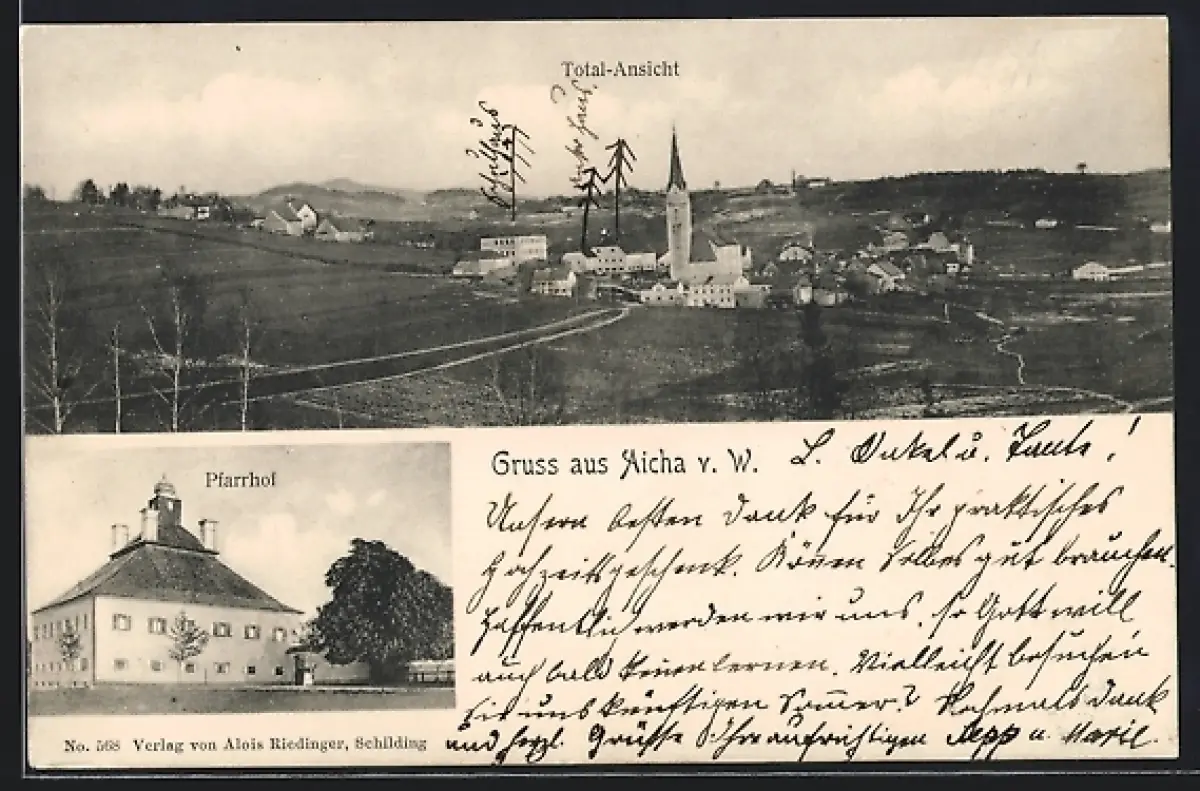 Total-Ansicht
Schulhaus
Haus
Pfarrhof
Gruss aus Aicha v. W.
L. Onkel u. Tante!
Unsern besten Dank für Ihr praktisches
Hochzeitsgeschenk. Können Selbes gut brauchen.
Hoffentlich werden wir uns, so Gott will
auch bald kennen lernen. Vielleicht besuchen
Sie uns künftigen Sommer? Nochmals Dank
und herzl. Grüsse Ihre aufrichtigen Sepp u. Marie.
No. 568 Verlag von Alois Riedinger, Schilding